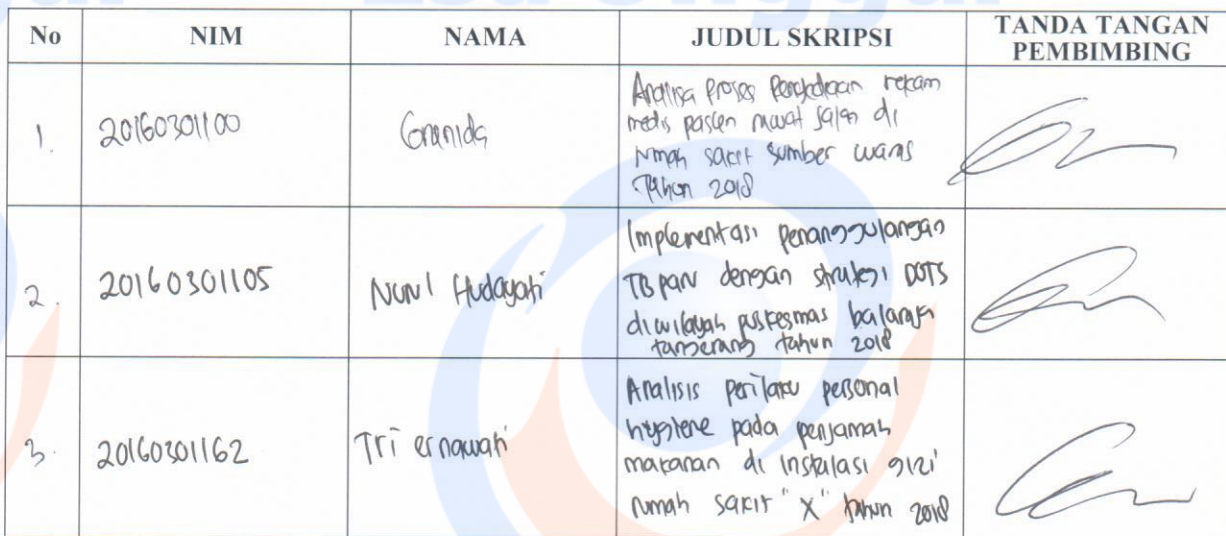 Esa Unggul
No NIM NAMA JUDUL SKRIPSI TANDA TANGAN
PEMBIMBING
1. 20160301100 Granida Analisa proses Penyediaan rekam
medis pasien rawat jalan di
rumah sakit sumber waras
Tahun 2018
2. 20160301105 Nurul Hudayati Implementasi penanggulangan
TB paru dengan strategi DOTS
diwilayah puskesmas balaraja
tangerang tahun 2018
3. 20160301162 Tri ernawati Analisis perilaku personal
hygiene pada penjamah
makanan di instalasi gizi
rumah sakit "X" tahun 2018